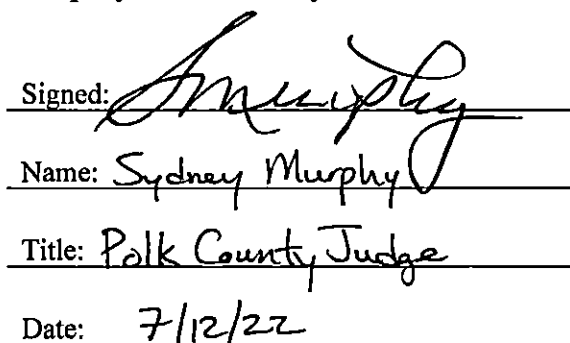 Signed: SMurphy
Name: Sydney Murphy
Title: Polk County Judge
Date: 7/12/22